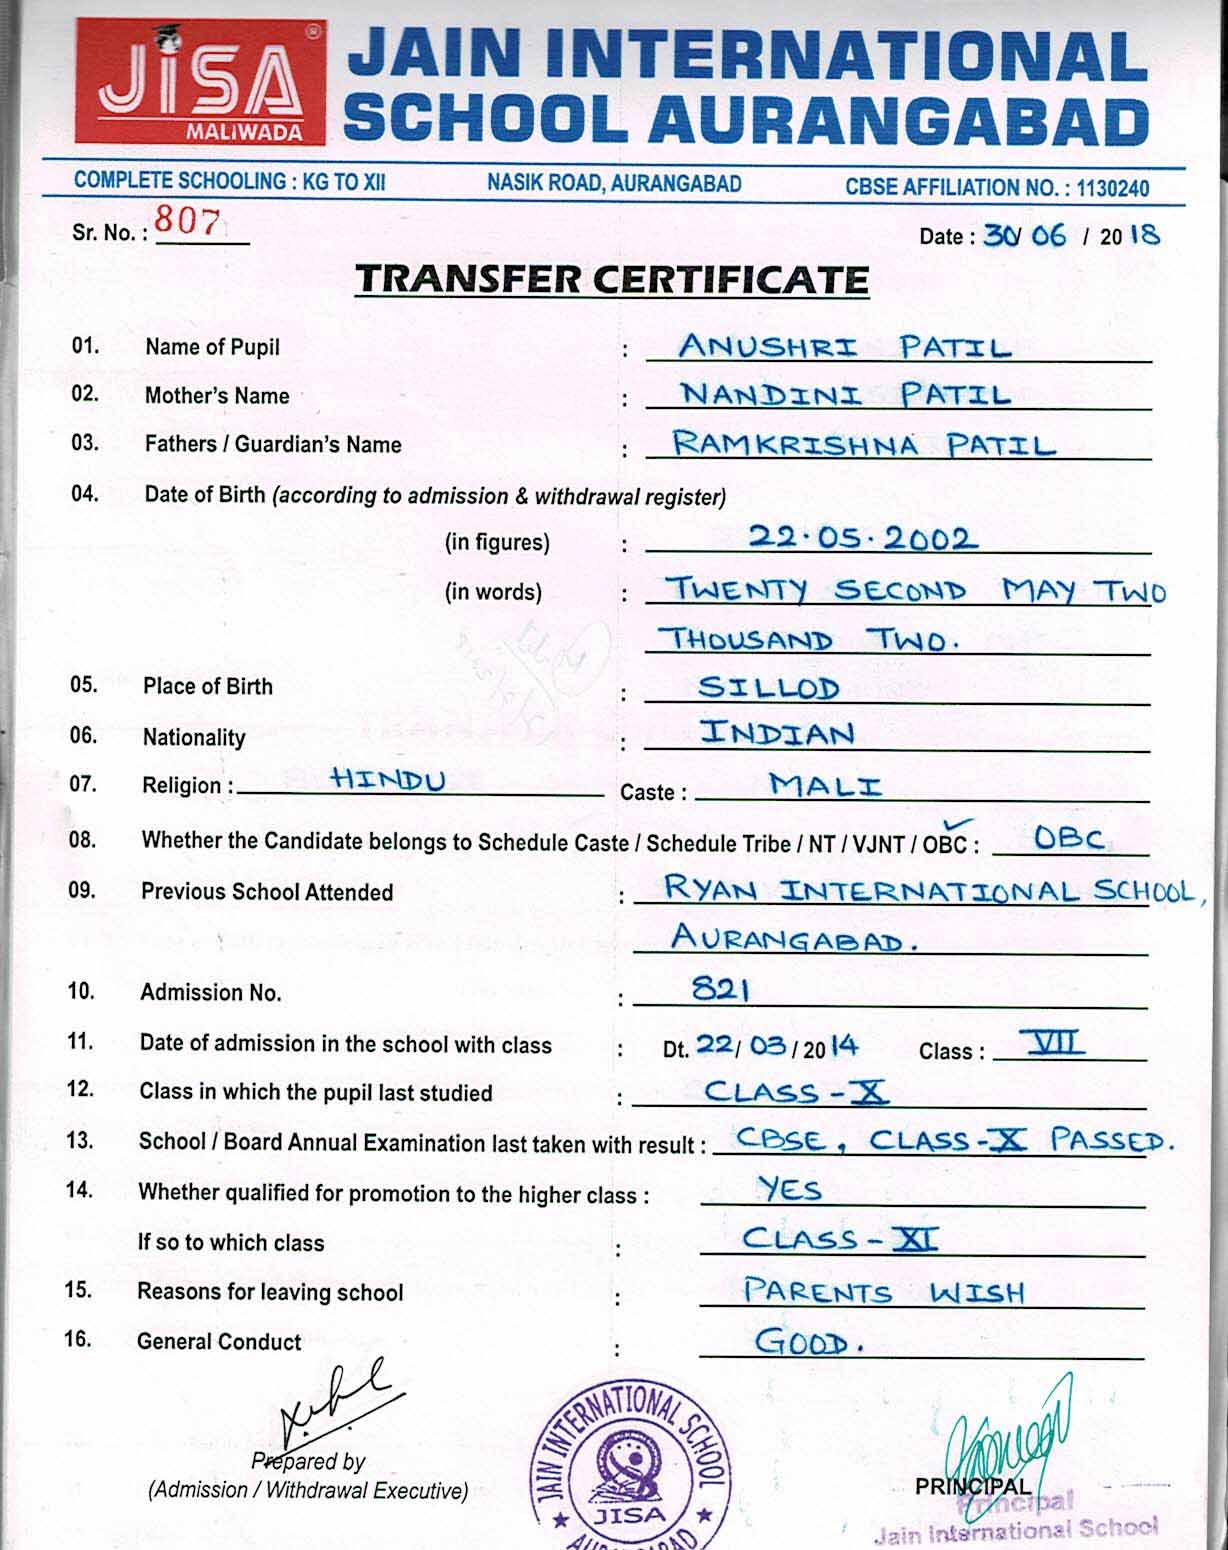 JiSA ®
MALiWADA
JAIN INTERNATIONAL
SCHOOL AURANGABAD
COMPLETE SCHOOLING : KG TO XII NASIK ROAD, AURANGABAD CBSE AFFILIATION NO. : 1130240
Sr. No. : 807 Date : 30/ 06 / 2018
TRANSFER CERTIFICATE
01. Name of Pupil : ANUSHRI PATIL
02. Mother's Name : NANDINI PATIL
03. Fathers / Guardian's Name : RAMKRISHNA PATIL
04. Date of Birth (according to admission & withdrawal register)
(in figures) : 22.05.2002
(in words) : TWENTY SECOND MAY TWO
THOUSAND TWO.
05. Place of Birth : SILLOD
06. Nationality : INDIAN
07. Religion : HINDU Caste : MALI
08. Whether the Candidate belongs to Schedule Caste / Schedule Tribe / NT / VJNT / OBC : OBC
09. Previous School Attended : RYAN INTERNATIONAL SCHOOL,
AURANGABAD.
10. Admission No. : 821
11. Date of admission in the school with class : Dt. 22/ 03 / 2014 Class : VII
12. Class in which the pupil last studied : CLASS - X
13. School / Board Annual Examination last taken with result : CBSE, CLASS-X PASSED.
14. Whether qualified for promotion to the higher class : YES
If so to which class : CLASS - XI
15. Reasons for leaving school : PARENTS WISH
16. General Conduct : GOOD.
Prepared by
(Admission / Withdrawal Executive)
JAIN INTERNATIONAL SCHOOL
JISA
AURANGABAD
PRINCIPAL
Principal
Jain International School